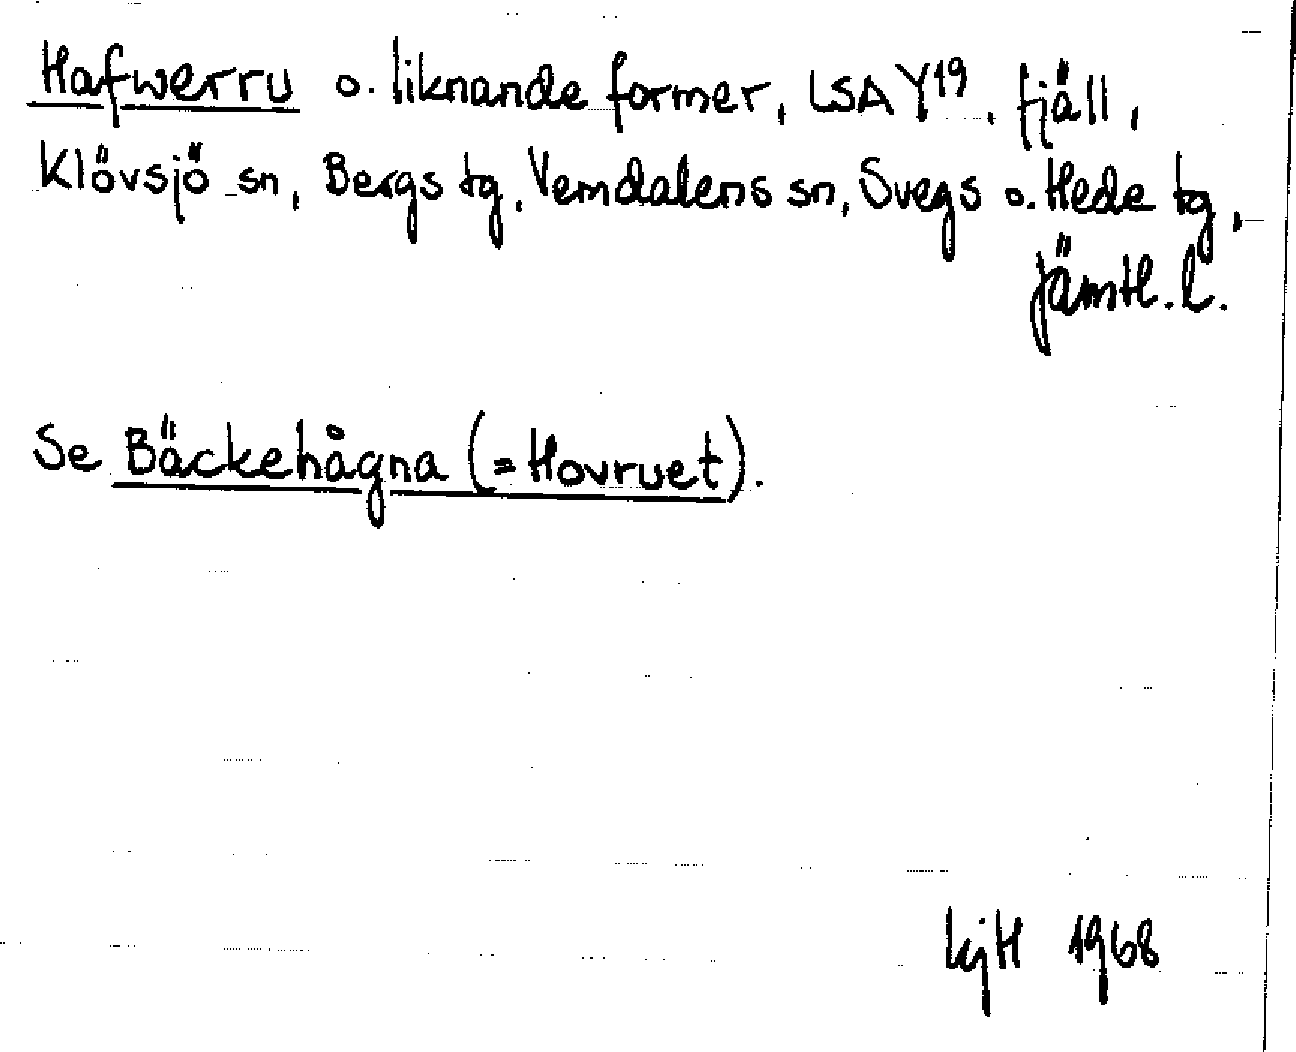 Hafwerru o. liknande former, LSA Y19, fjäll,
Klövsjö sn, Bergs tg, Vemdalens sn, Svegs o. Hede tg,
Jämtl. l.
Se Bäckehågna (= Hovruet).
kjH 1968